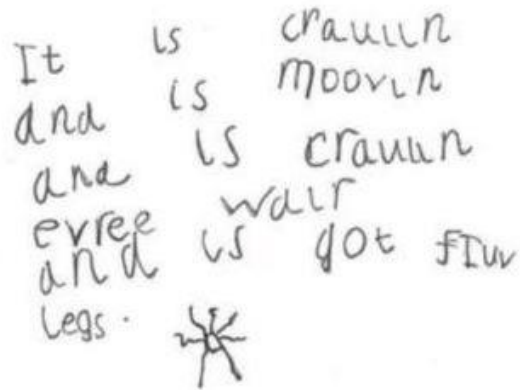 It is crauiin
and is moovin
and is crauun
evree wair
and is got fIuv
legs.